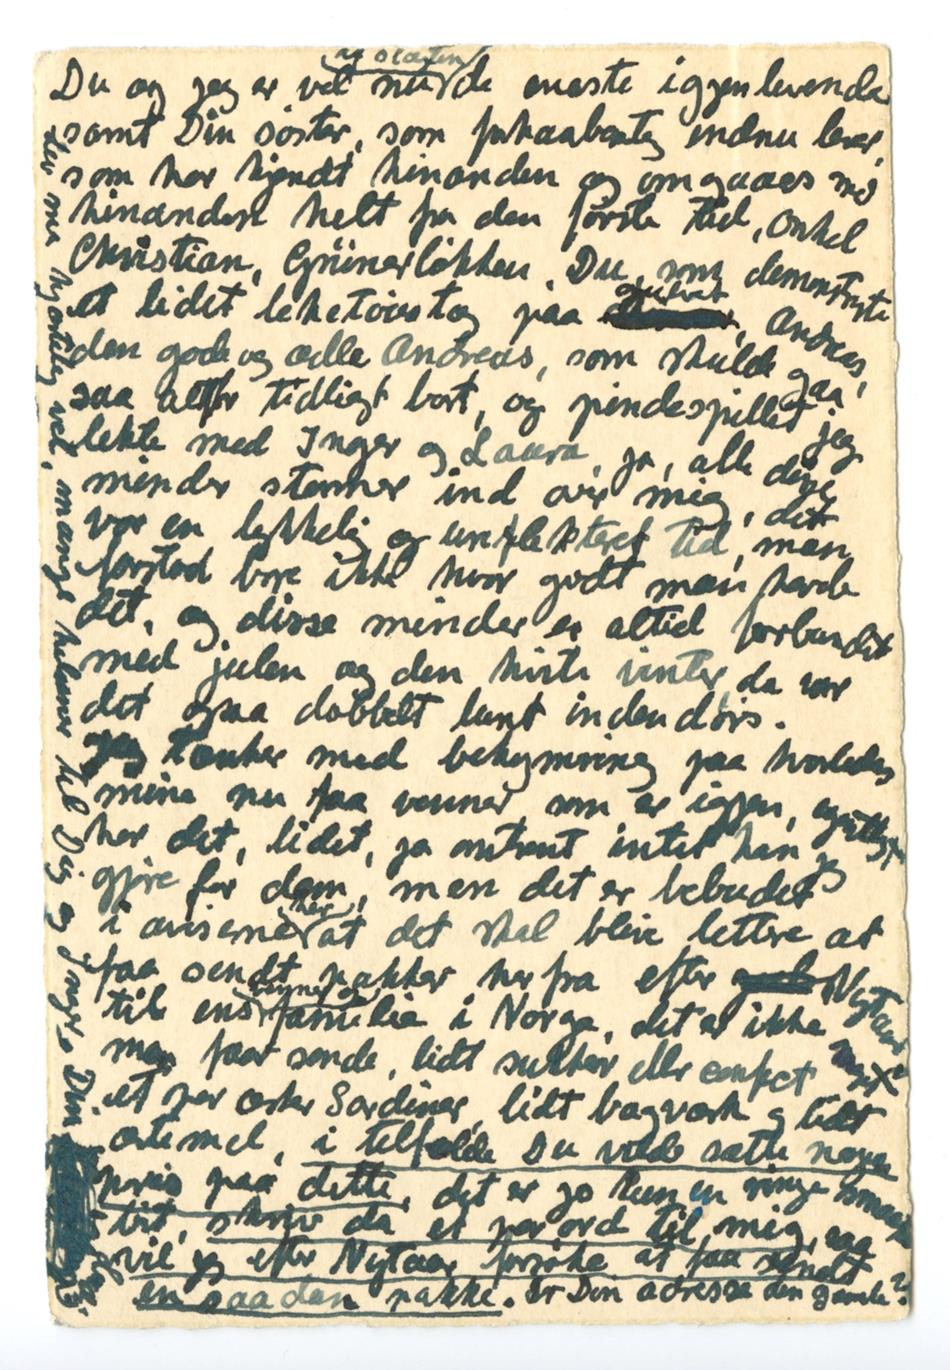 af slægten
Du og jeg er vel nu de eneste igjenlevende
samt Din søster, som forhaabentlig endnu lever,
som har kjendt hinanden og omgaaes med
hinanden helt fra den første tid, onkel
Christian, Grünerløkken. Du, som demonstrerte
et lidet leketøistog paa gulvet, Andreas,
den gode og ædle Andreas, som skulde gaa
saa altfor tidligt bort, og pindespillet jeg
lekte med Inger og Laura, ja, alle disse
minder stormer ind over mig, det
var en lykkelig og ureflekteret tid, man
forstod bare ikke hvor godt man havde
det, og disse minder er altid forbundet
med julen og den hvite vinter, da var
det ogsaa dobbelt lunt indendørs.
Jeg tænker med bekymring paa hvorledes
mine nu faa venner som er igjen,
har det, lidet, ja omtrent intet kan jeg
gjøre for dem, men det er bebudet
i aviserne her at det skal blive lettere at
faa sendt pakker herfra efter Nytaar
til ens venner og familie i Norge, det er ikke meget
man faar sende, lidt sukker eller confect
et par æsker Sardiner, lidt bagværk og lidt
ertemel, i tilfælde Du vilde sætte nogen
pris paa dette, det er jo kun en ringe
skriv da et par ord til mig, saa
vil jeg efter Nytaar forsøke at faa sendt
en saadan pakke. Er Din adresse den gamle?
Lev nu hjertelig vel, mange hilsener til Dig og Inger Din